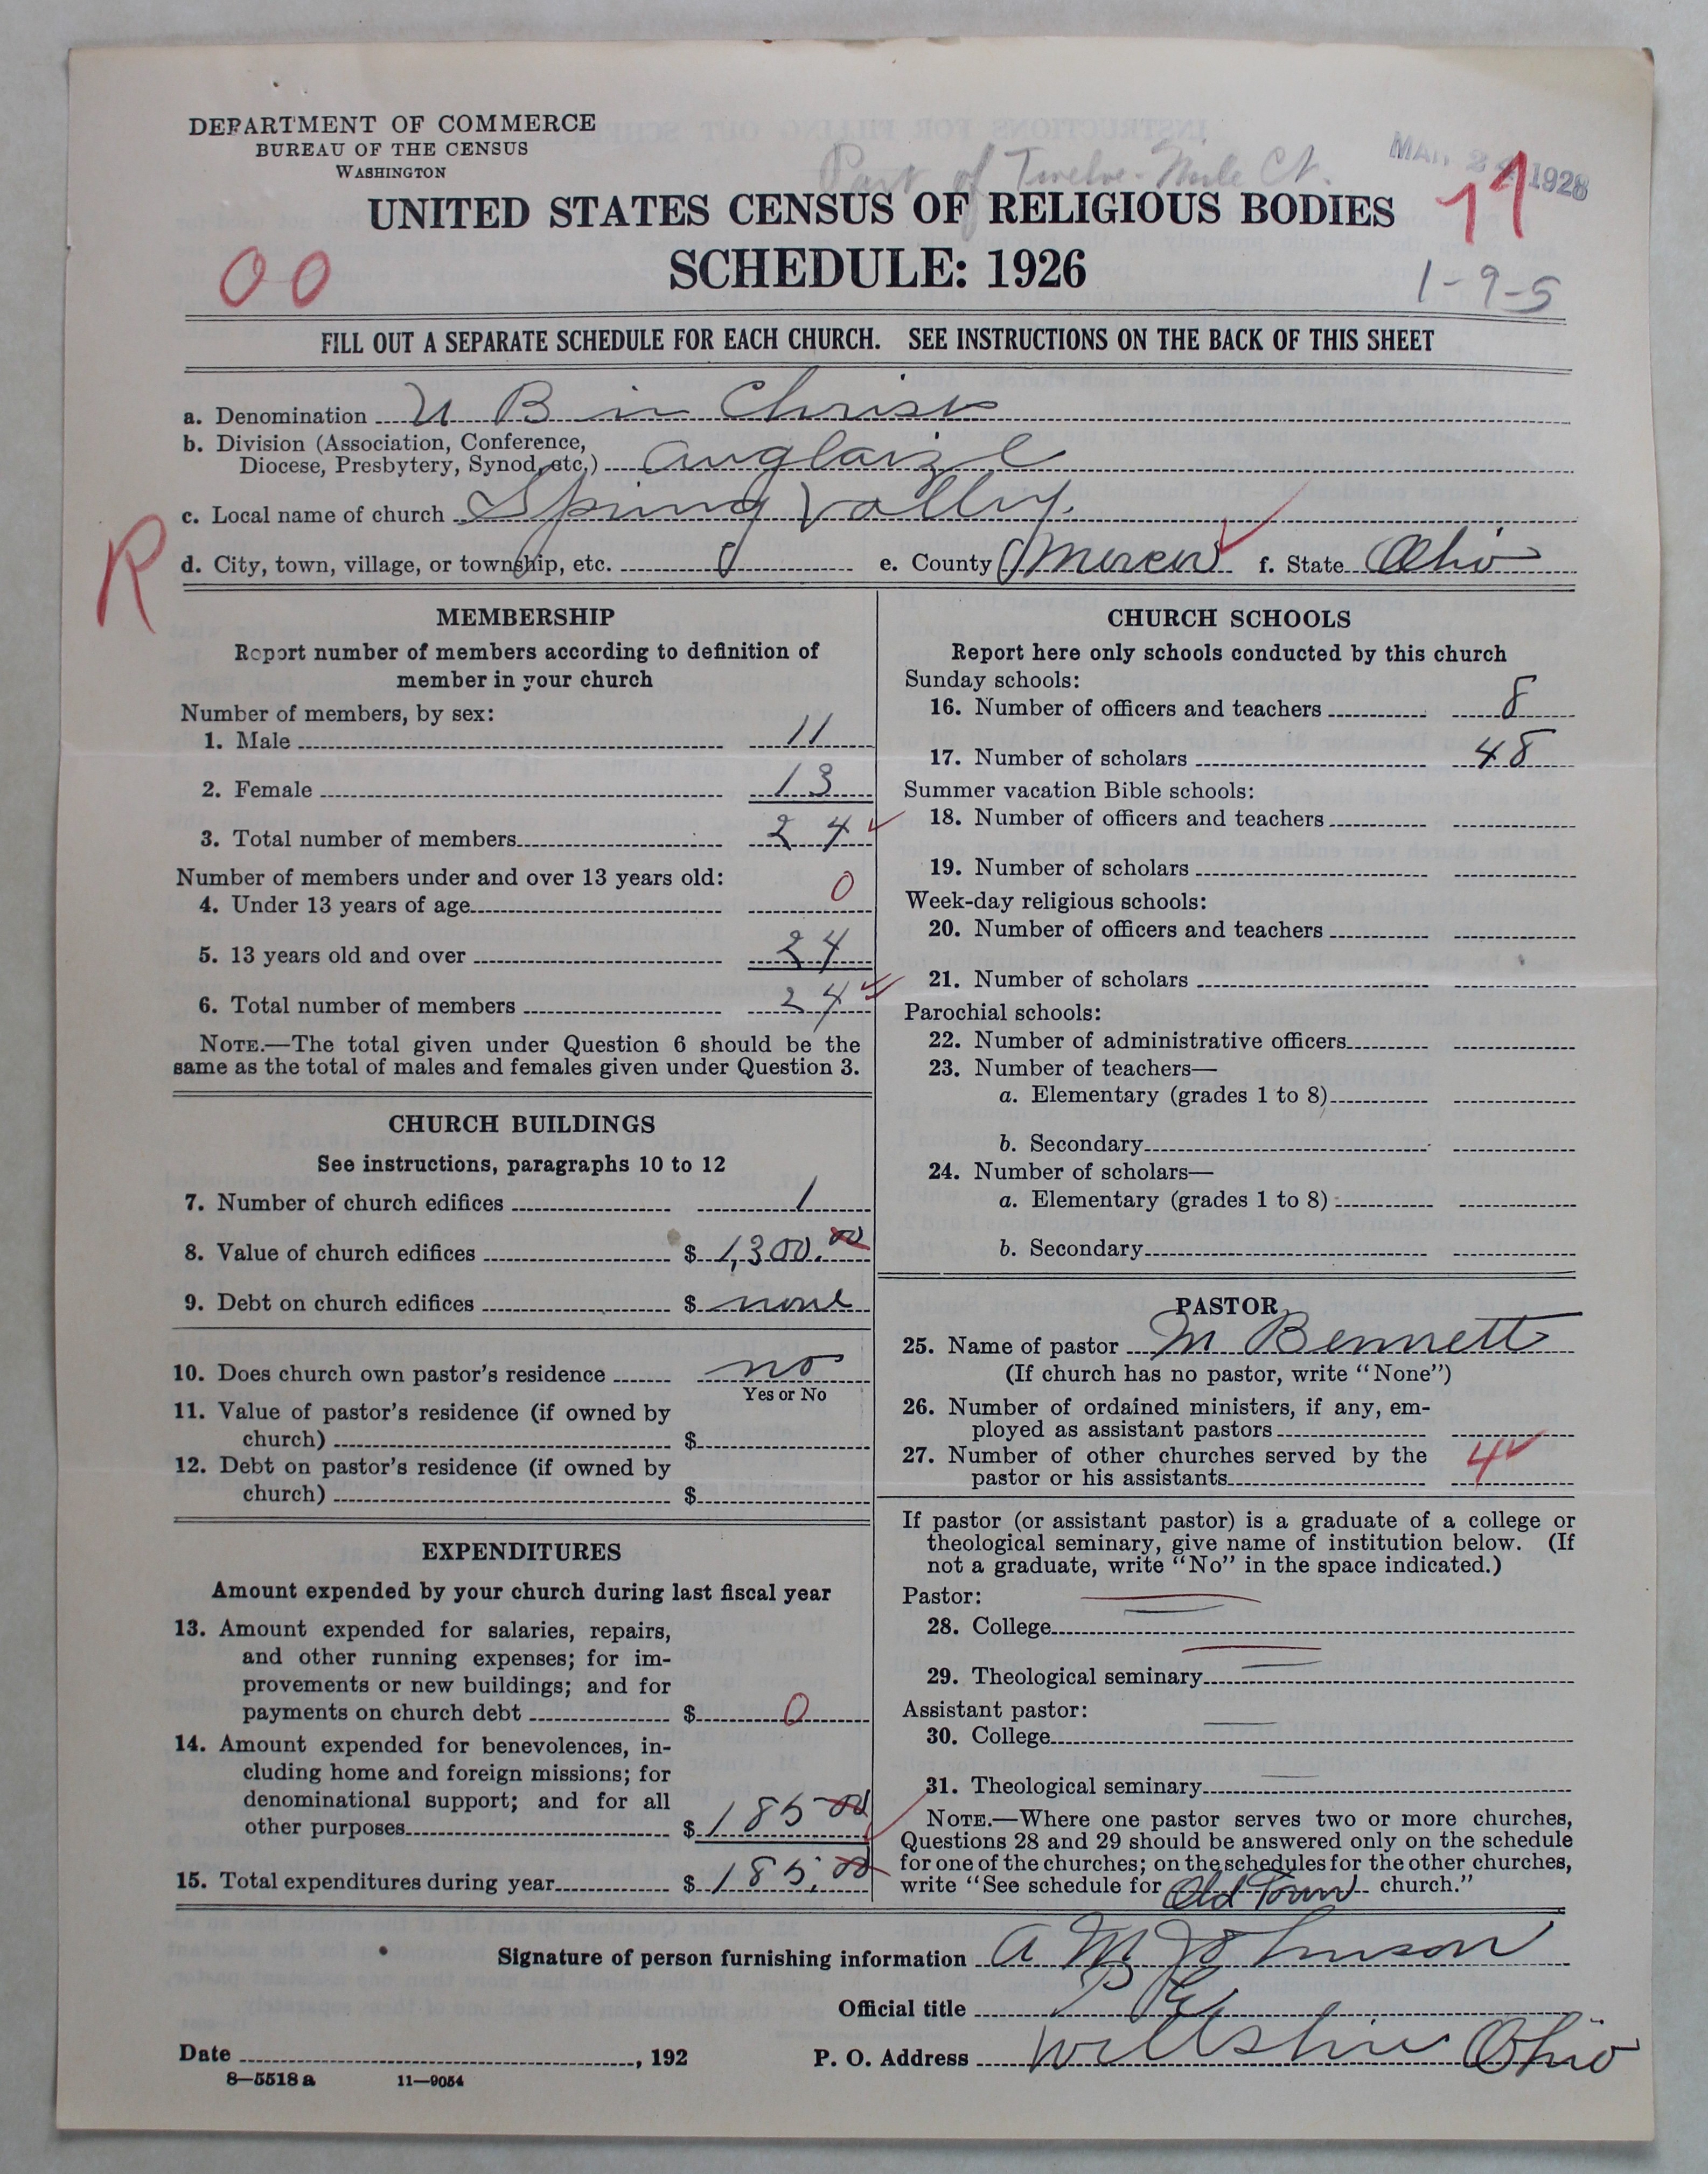 DEPARTMENT OF COMMERCE
BUREAU OF THE CENSUS
WASHINGTON
Part of Twelve-Mile Ct.
1928
UNITED STATES CENSUS OF RELIGIOUS BODIES
SCHEDULE: 1926
00
1-9-5
FILL OUT A SEPARATE SCHEDULE FOR EACH CHURCH. SEE INSTRUCTIONS ON THE BACK OF THIS SHEET
a. Denomination U B in Christ
b. Division (Association, Conference,
Diocese, Presbytery, Synod, etc.) Auglaize
c. Local name of church Spring Valley.
R
d. City, town, village, or township, etc. e. County Mercer f. State Ohio
MEMBERSHIP
Report number of members according to definition of
member in your church
Number of members, by sex:
1. Male 11
2. Female 13
3. Total number of members 24
Number of members under and over 13 years old:
4. Under 13 years of age 0
5. 13 years old and over 24
6. Total number of members 24
NOTE.—The total given under Question 6 should be the
same as the total of males and females given under Question 3.
CHURCH BUILDINGS
See instructions, paragraphs 10 to 12
7. Number of church edifices 1
8. Value of church edifices $ 1,300.00
9. Debt on church edifices $ none
10. Does church own pastor's residence no
Yes or No
11. Value of pastor's residence (if owned by
church) $
12. Debt on pastor's residence (if owned by
church) $
EXPENDITURES
Amount expended by your church during last fiscal year
13. Amount expended for salaries, repairs,
and other running expenses; for im-
provements or new buildings; and for
payments on church debt $ 0
14. Amount expended for benevolences, in-
cluding home and foreign missions; for
denominational support; and for all
other purposes $ 185 00
15. Total expenditures during year $ 185.00
CHURCH SCHOOLS
Report here only schools conducted by this church
Sunday schools:
16. Number of officers and teachers 8
17. Number of scholars 48
Summer vacation Bible schools:
18. Number of officers and teachers
19. Number of scholars
Week-day religious schools:
20. Number of officers and teachers
21. Number of scholars
Parochial schools:
22. Number of administrative officers
23. Number of teachers—
a. Elementary (grades 1 to 8)
b. Secondary
24. Number of scholars—
a. Elementary (grades 1 to 8)
b. Secondary
PASTOR
25. Name of pastor M Bennett
(If church has no pastor, write "None")
26. Number of ordained ministers, if any, em-
ployed as assistant pastors
27. Number of other churches served by the
pastor or his assistants 4
If pastor (or assistant pastor) is a graduate of a college or
theological seminary, give name of institution below. (If
not a graduate, write "No" in the space indicated.)
Pastor:
28. College
29. Theological seminary
Assistant pastor:
30. College
31. Theological seminary
NOTE.—Where one pastor serves two or more churches,
Questions 28 and 29 should be answered only on the schedule
for one of the churches; on the schedules for the other churches,
write "See schedule for Old Town church."
Signature of person furnishing information A M Johnson
Official title P E
Date , 192 P. O. Address Willshire Ohio
8—5518 a 11—9054